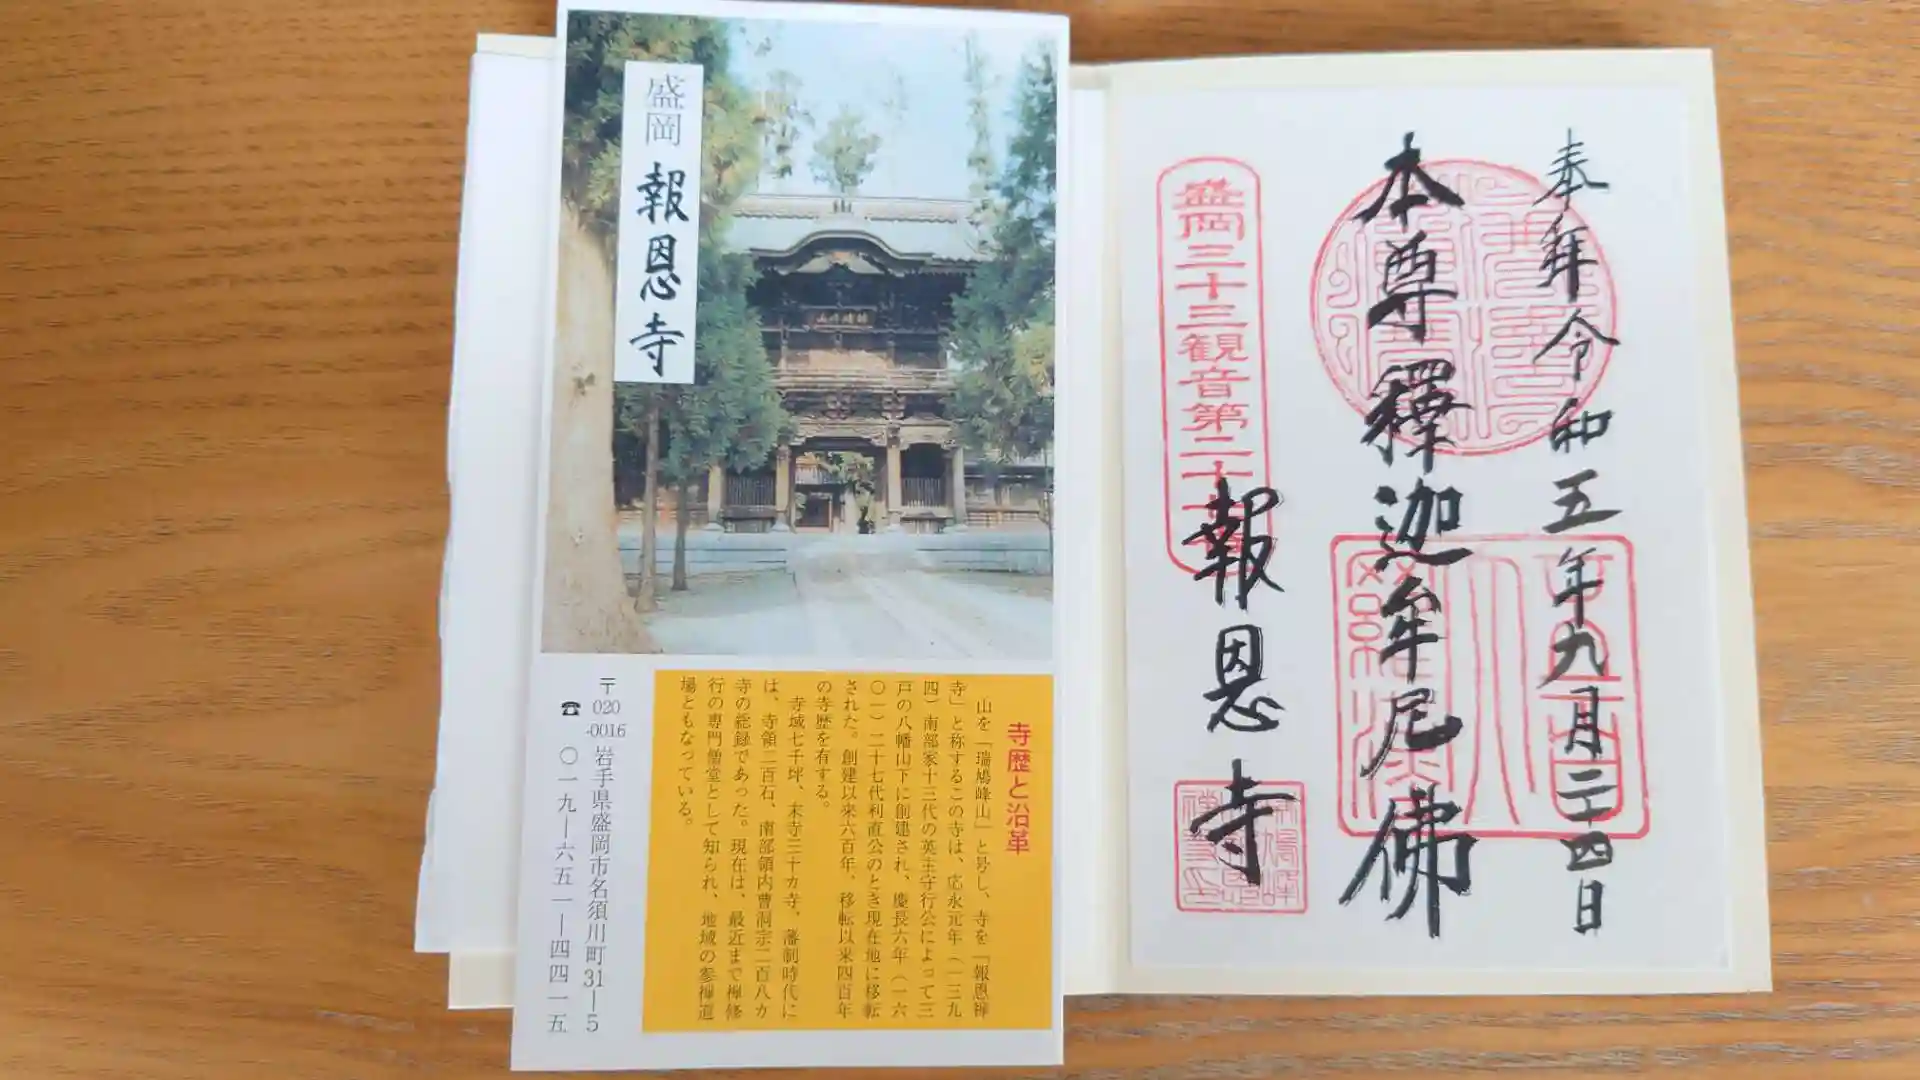 盛岡 報恩寺
寺歴と沿革
山を「瑞鳩峰山」と号し、寺を「報恩禅
寺」と称するこの寺は、応永元年（一三九
四）南部家十三代の英主守行公によって三
戸の八幡山下に創建され、慶長六年（一六
〇一）二十七代利直公のとき現在地に移転
された。創建以来六百年、移転以来四百年
の寺歴を有する。
寺域七千坪、末寺三十カ寺、藩制時代に
は、寺領二百石、南部領内曹洞宗二百八カ
寺の総録であった。現在は、最近まで禅修
行の専門僧堂として知られ、地域の参禅道
場ともなっている。
〒020-0016 岩手県盛岡市名須川町31―5
☎〇一九―六五一―四四一五
奉拝 令和五年九月二十四日
本尊釋迦牟尼佛
盛岡三十三観音第二十
報恩寺